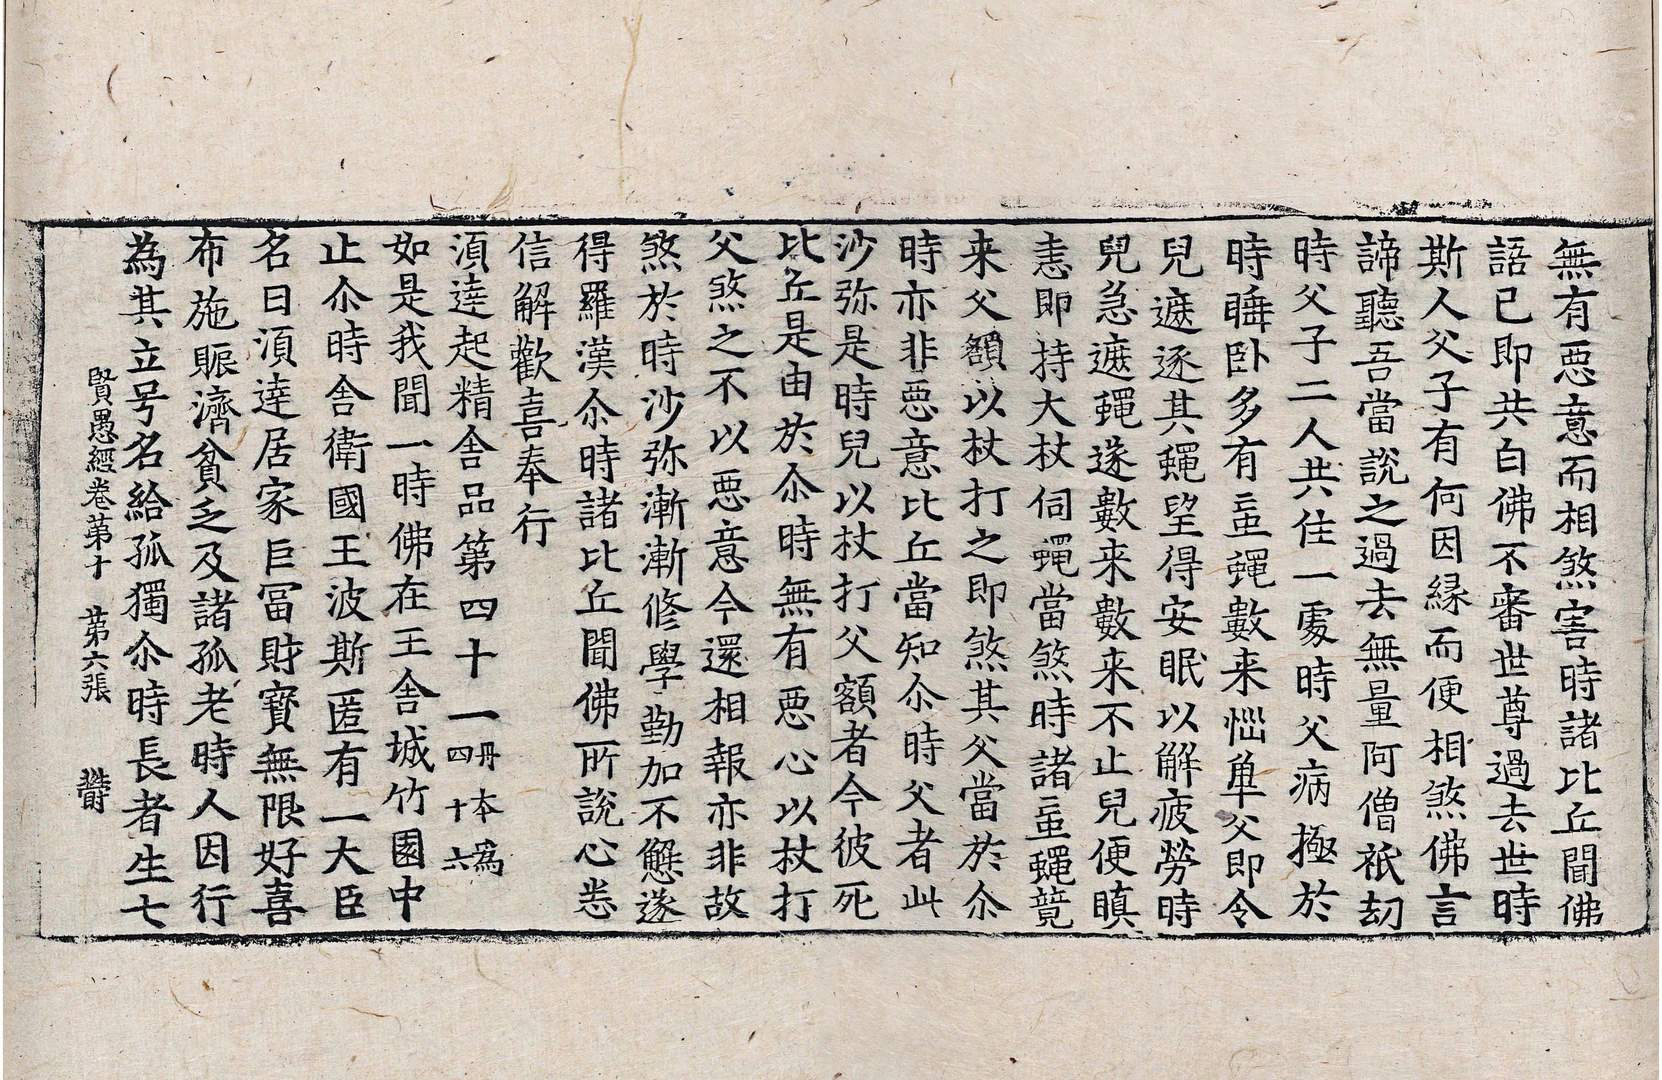 無有惡意而相煞害時諸比丘聞佛
語已即共白佛不審世尊過去世時
斯人父子有何因縁而便相煞佛言
諦聽吾當說之過去無量阿僧祇劫
時父子二人共住一處時父病極於
時睡卧多有䖟蠅數来惱㪅父即令
兒遮逐其蠅望得安眠以解疲勞時
兒急遮蠅遂數来數来不止兒便瞋
恚即持大杖伺蠅當煞時諸䖟蠅競
来父額以杖打之即煞其父當於尒
時亦非惡意比丘當知尒時父者此
沙弥是時兒以杖打父額者今彼死
比丘是由於尒時無有惡心以杖打
父煞之不以惡意今還相報亦非故
煞於時沙弥漸漸修學勤加不懈遂
得羅漢尒時諸比丘聞佛所說心悉
信解歡喜奉行
湏達起精舍品第四十一丹本爲四十六
如是我聞一時佛在王舍城竹園中
止尒時舍衛國王波斯匿有一大臣
名曰湏達居家巨冨財寶無限好喜
布施賑濟貧乏及諸孤老時人因行
為其立号名給孤獨尒時長者生七
賢愚經卷第十　第六張　欝